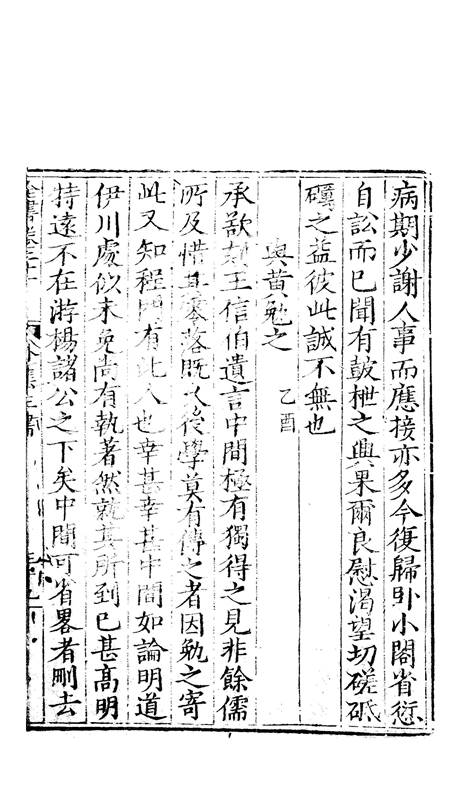 病期少謝人事而應接亦多今復歸卧小閣省愆
自訟而已聞有鼓枻之興果爾良慰渴望切磋砥
礪之益彼此誠不無也
與黃勉之 乙酉
承欲刻王信伯遺言中間極有獨得之見非餘儒
所及惜其零落既久後學莫有傳之者因勉之寄
此又知程門有此人也幸甚幸甚中間如論明道
伊川處似未免尚有執著然就其所到已甚高明
持遠不在游楊諸公之下矣中間可省畧者刪去